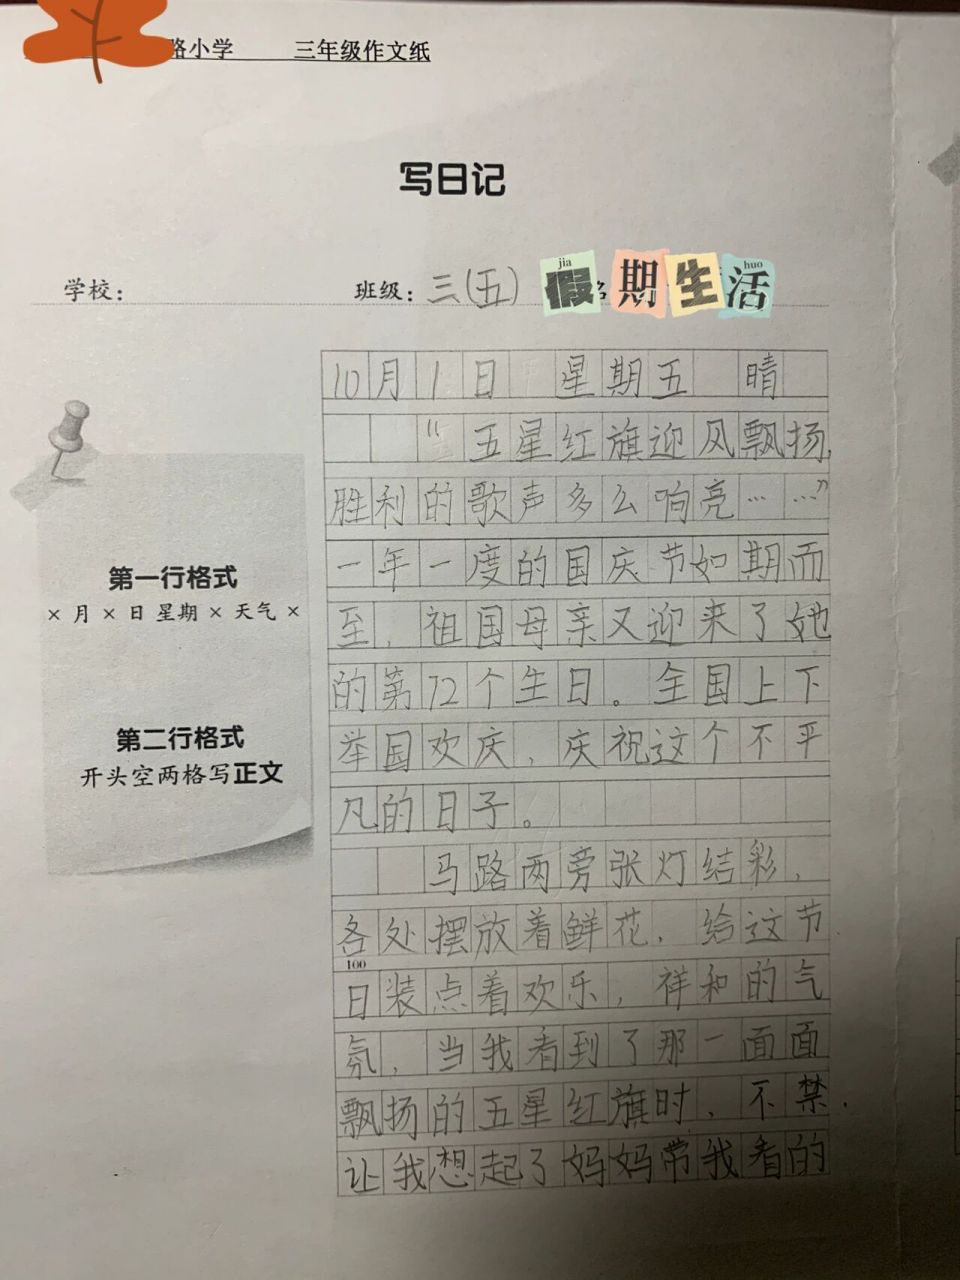 路小学 三年级作文纸
写日记
学校： 班级：三(五)
jia huo
假期生活
第一行格式
×月×日 星期×天气×
第二行格式
开头空两格写正文
10月1日 星期五 晴
“五星红旗迎风飘扬，
胜利的歌声多么响亮……”
一年一度的国庆节如期而
至，祖国母亲又迎来了她
的第72个生日。全国上下
举国欢庆，庆祝这个不平
凡的日子。
马路两旁张灯结彩，
各处摆放着鲜花，给这节
100
日装点着欢乐，祥和的气
氛，当我看到了那一面面
飘扬的五星红旗时，不禁
让我想起了妈妈带我看的